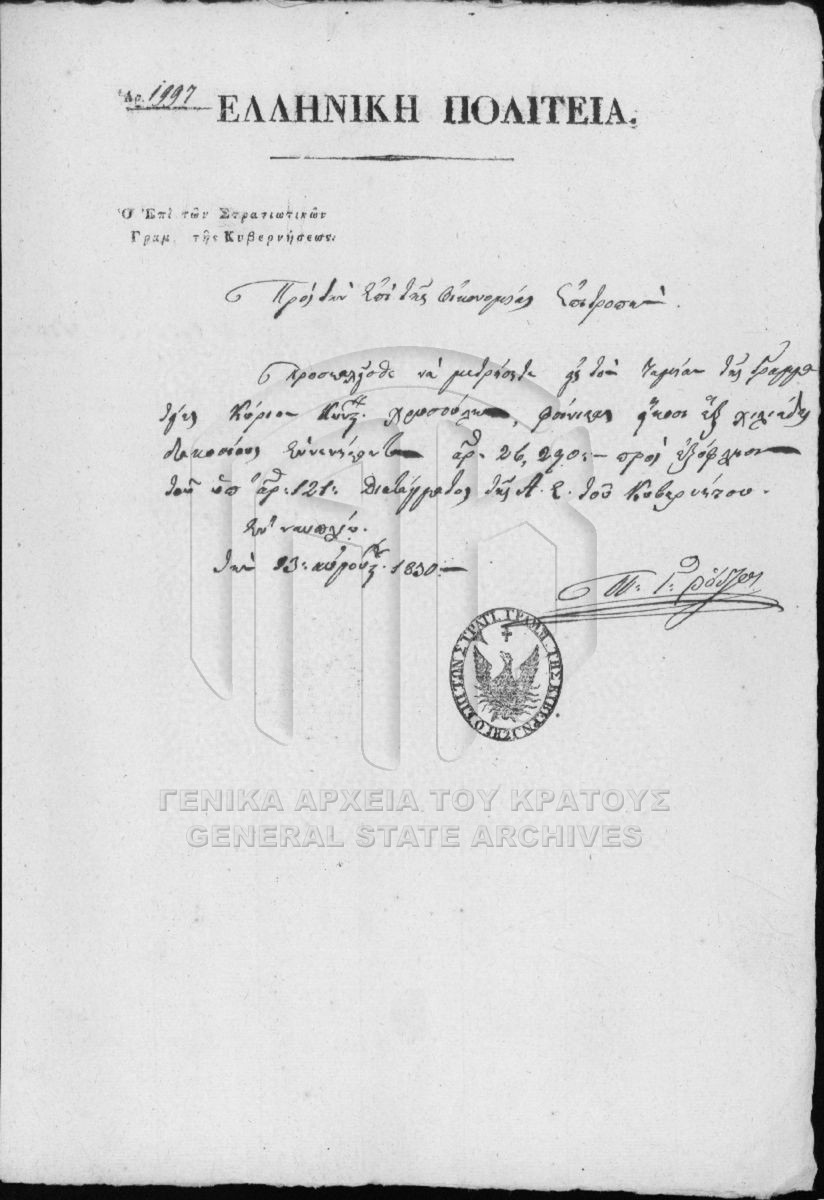 Ἀρ. 1997
ΕΛΛΗΝΙΚΗ ΠΟΛΙΤΕΙΑ.
Ὁ Ἐπὶ τῶν Στρατιωτικῶν
Γραμ. τῆς Κυβερνήσεως.
Πρὸς τὴν Ἐπὶ τῆς Οἰκονομίας Ἐπιτροπήν.
Προσκαλεῖσθε νὰ μετρήσετε εἰς τὸν Ταμίαν τῆς Γραμμα
τείας Κύριον Κωνζ. , φοίνικας εἴκοσι ἓξ χιλιάδες
διακοσίους ἐννενήκοντα ἀρ. 26,290:— πρὸς ἐξόφλησιν
τοῦ ὑπ' ἀρ: 121: Διατάγματος τῆς Α. Ε. τοῦ Κυβερνήτου.
Ἐν Ναυπλίῳ.
τὴν 1830.—
Ο ΕΠΙ ΤΩΝ ΣΤΡΑΤΙ. ΓΡΑΜΜ. ΤΗΣ ΚΥΒΕΡΝΗΣ
ΓΕΝΙΚΑ ΑΡΧΕΙΑ ΤΟΥ ΚΡΑΤΟΥΣ
GENERAL STATE ARCHIVES